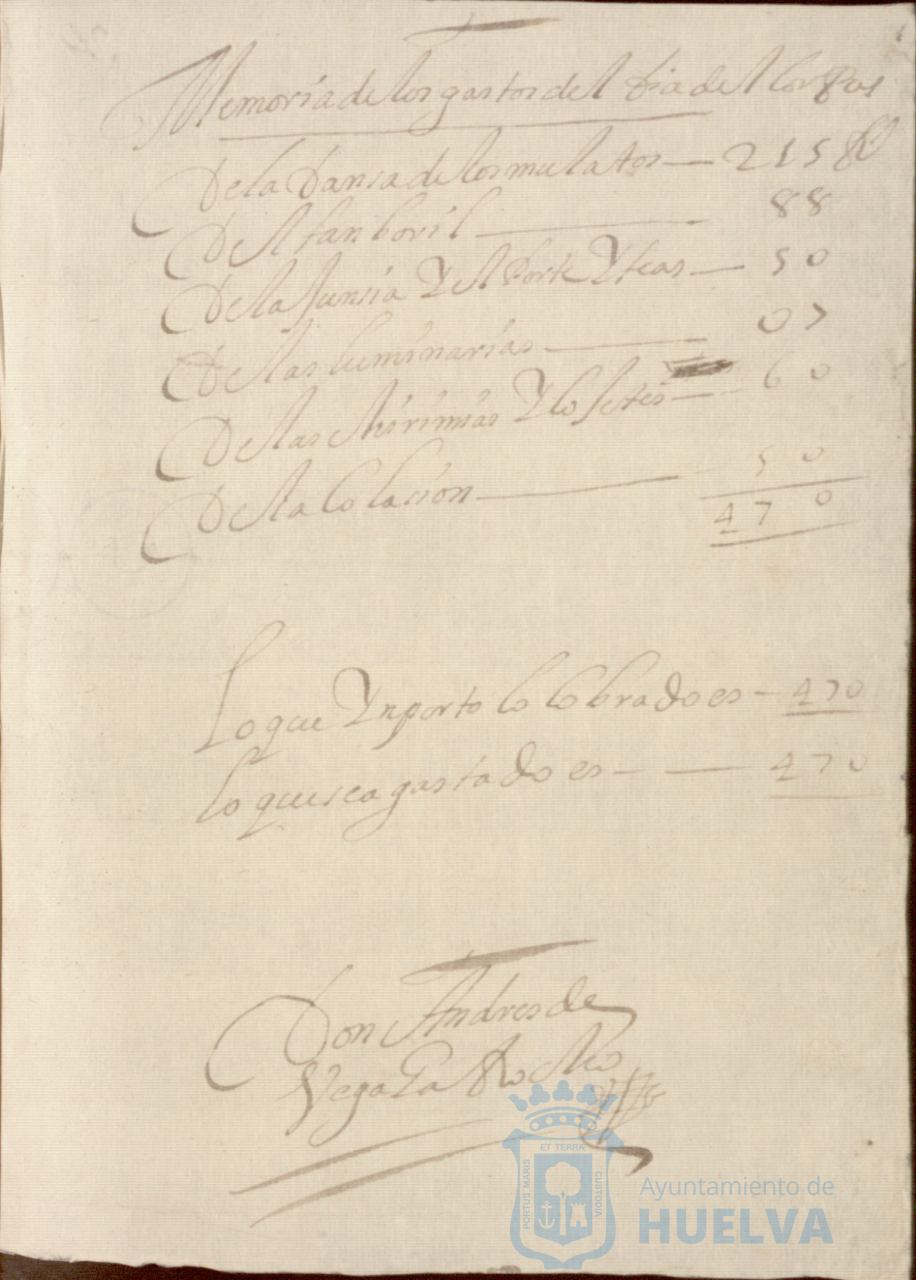 Memoria de los gastos del dia del Corpus
De la Dansa de los mulatos — 215 R
Del tanboril — 88
De la Junsia Y el Porte Y teas — 50
De las luminarias — 07
De las chirimias Y cojetes — 60
De la Colasion — 50
470
Lo que Ynporto lo Cobrado es — 470
lo que se a gastado es — — 470
Don Andres de
Vega
ET TERRA
PORTUS MARIS
CUSTODIA
Ayuntamiento de
HUELVA